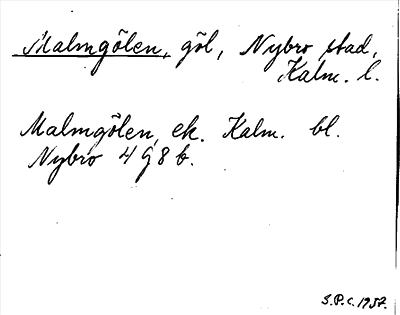 Malmgölen, göl, Nybro stad,
Kalm. l.
Malmgölen, ek. Kalm. bl.
Nybro 4 g 8 b.
S.P.C. 1957.